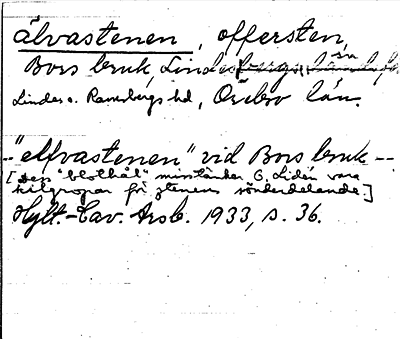 älvastenen, offersten,
Bors bruk, Lindes sn
Lindes o. Ramsbergs hd, Örebro län.
--"elfvastenen" vid Bors bruk --
[Dess "blothål" misstänker G. Lidén vara
kilgropar för stenens sönderdelande.]
Hylt.-Cav. Årsb. 1933, s. 36.